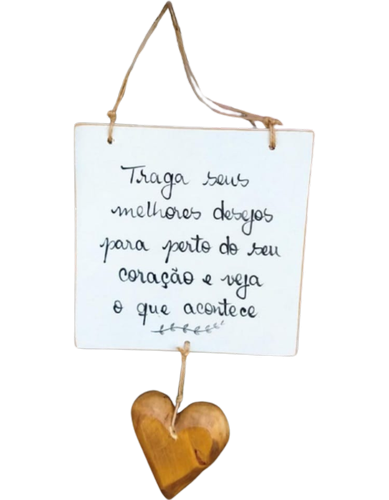 Traga seus
melhores desejos
para perto do seu
coração e veja
o que acontece